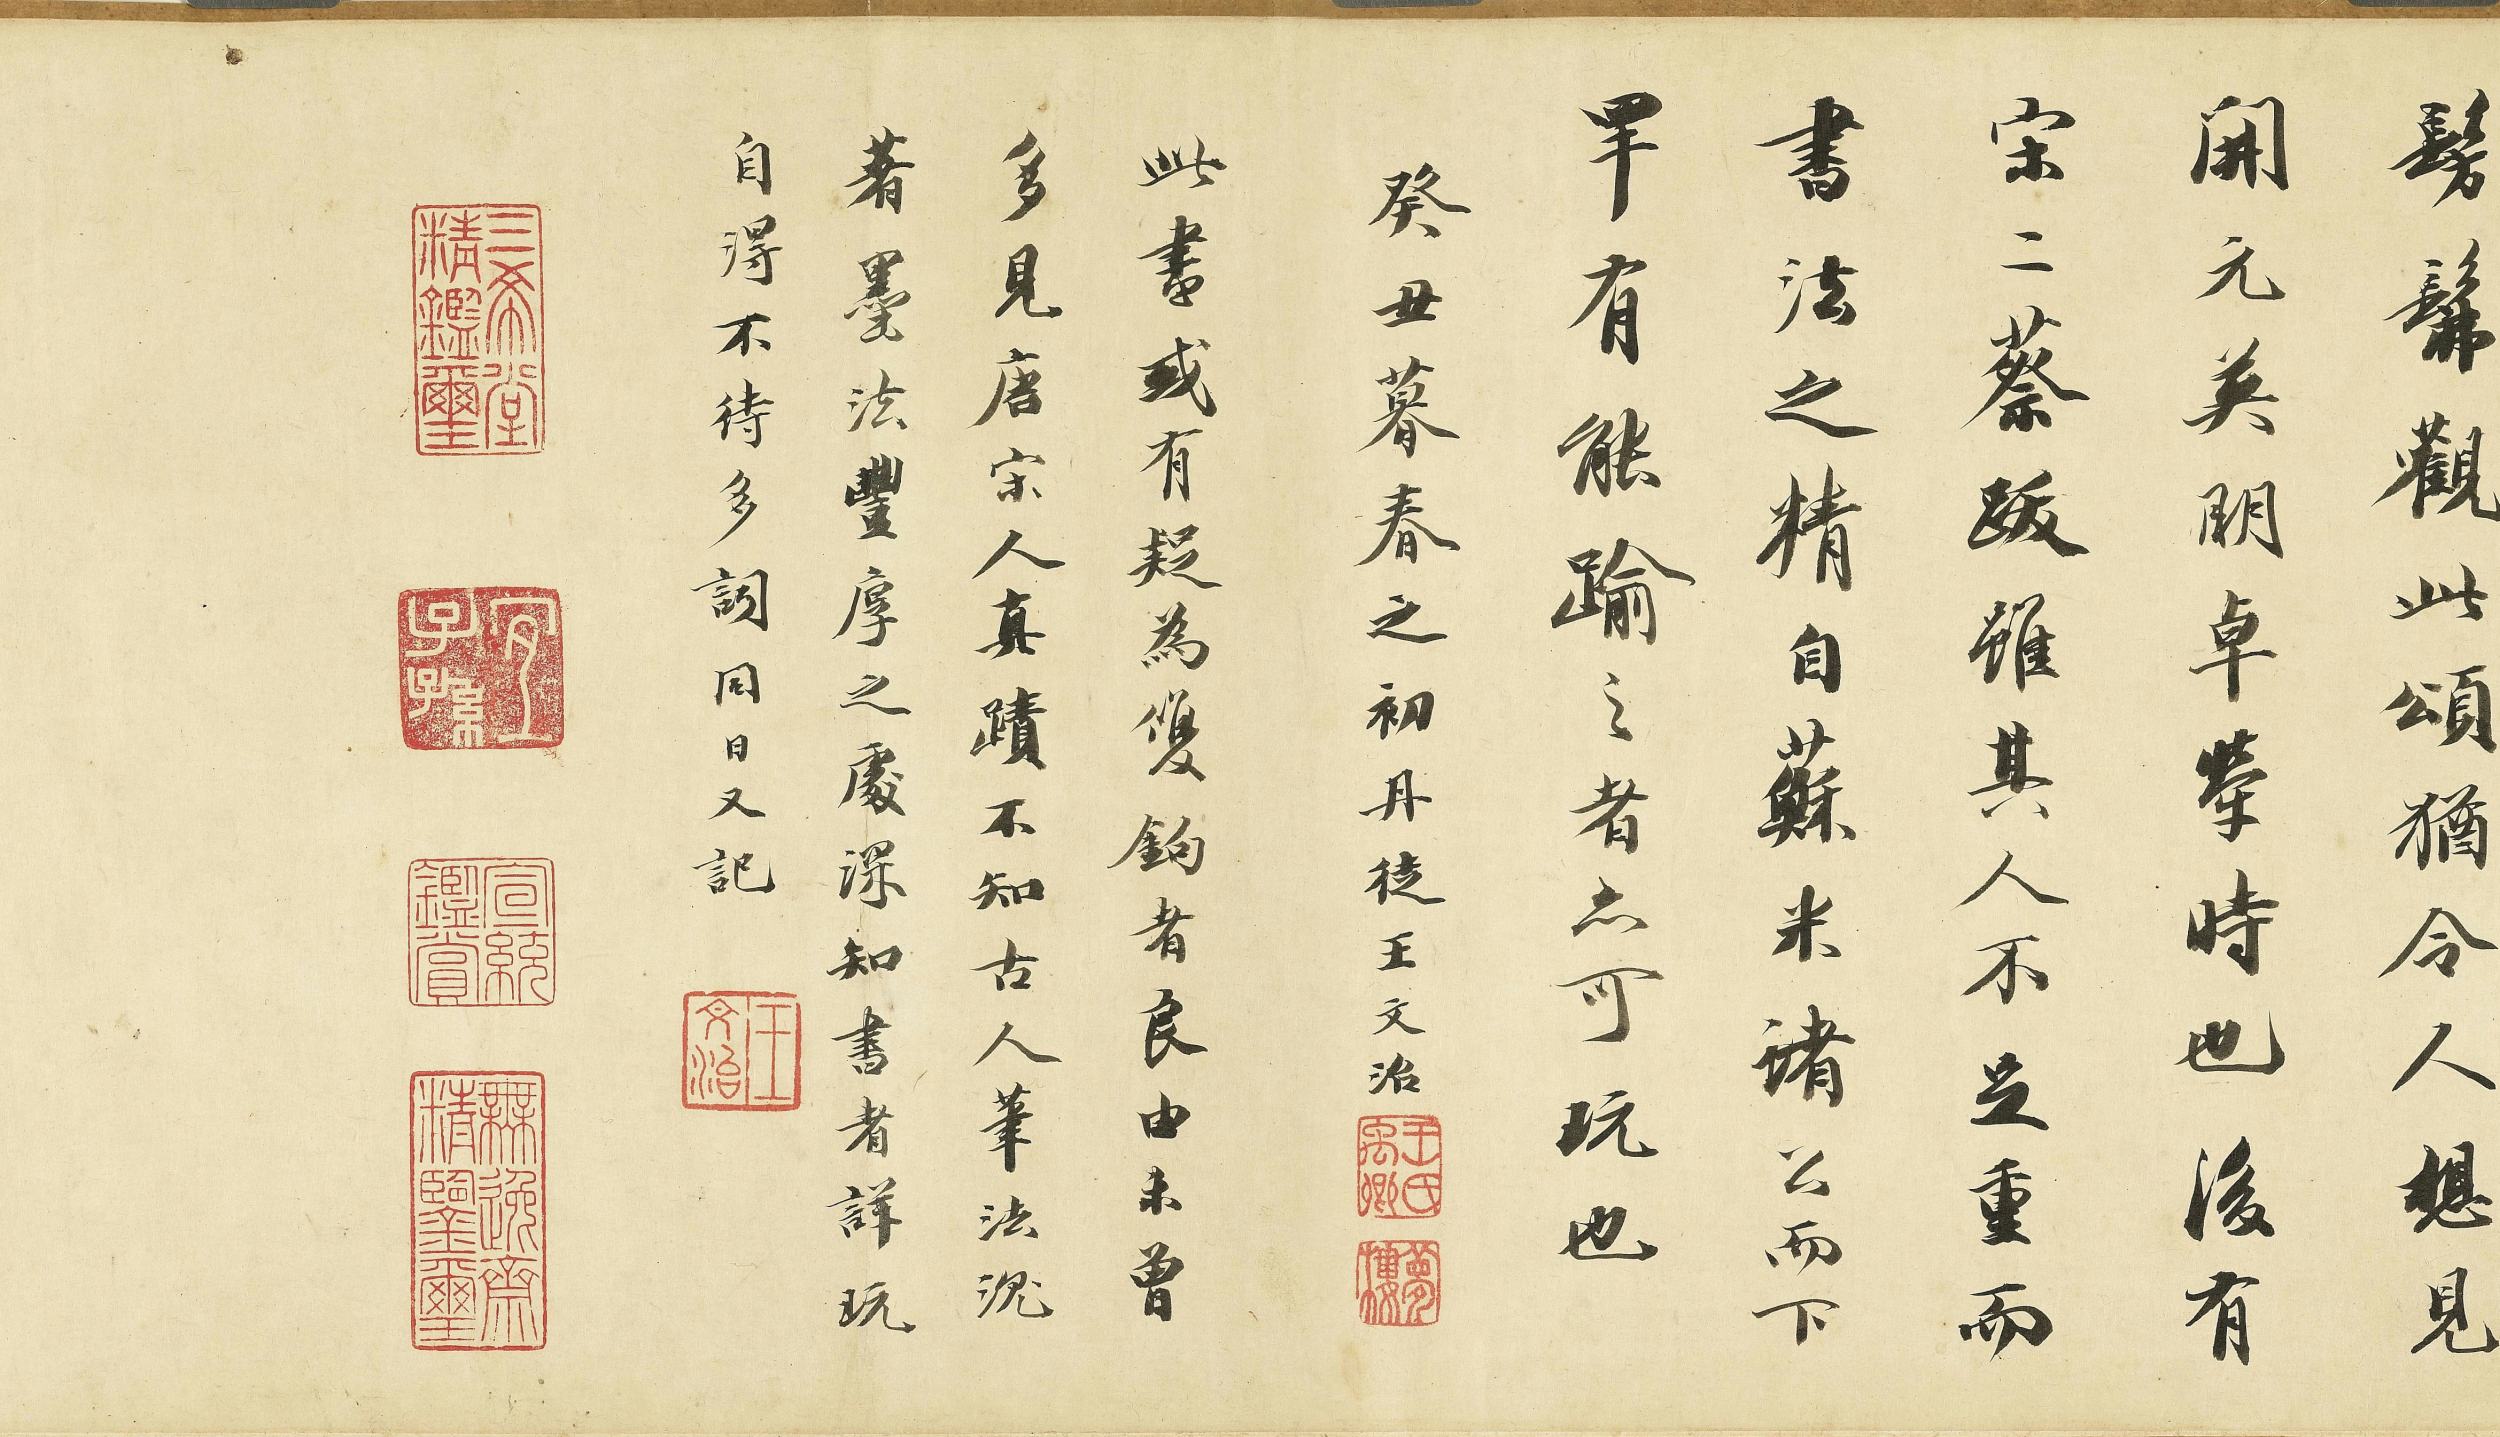 髣髴觀此頌猶令人想見
開元英明卓犖時也後有
宋二蔡跋雖其人不足重而
書法之精自蘇米諸公而下
罕有能踰之者亦可玩也
癸丑暮春之初丹徒王文治
王氏禹卿
夢樓
此書或有疑為雙鉤者良由未曾
多見唐宋人真蹟不知古人筆法況
著墨法豐厚之處深知書者詳玩
自得不待多詞同日又記
王文治
三希堂精鑑璽
宜子孫
宣統鑑賞
無逸齋精鑒璽